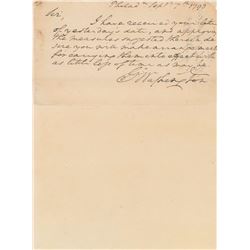 Philada Sept 7th 1793
Sir,
I have received your letter
of yesterday's date, and approving
the measures suggested therein de-
sire you will make arrangements
for carrying them into effect with
as little loss of time as may be
G: Washington